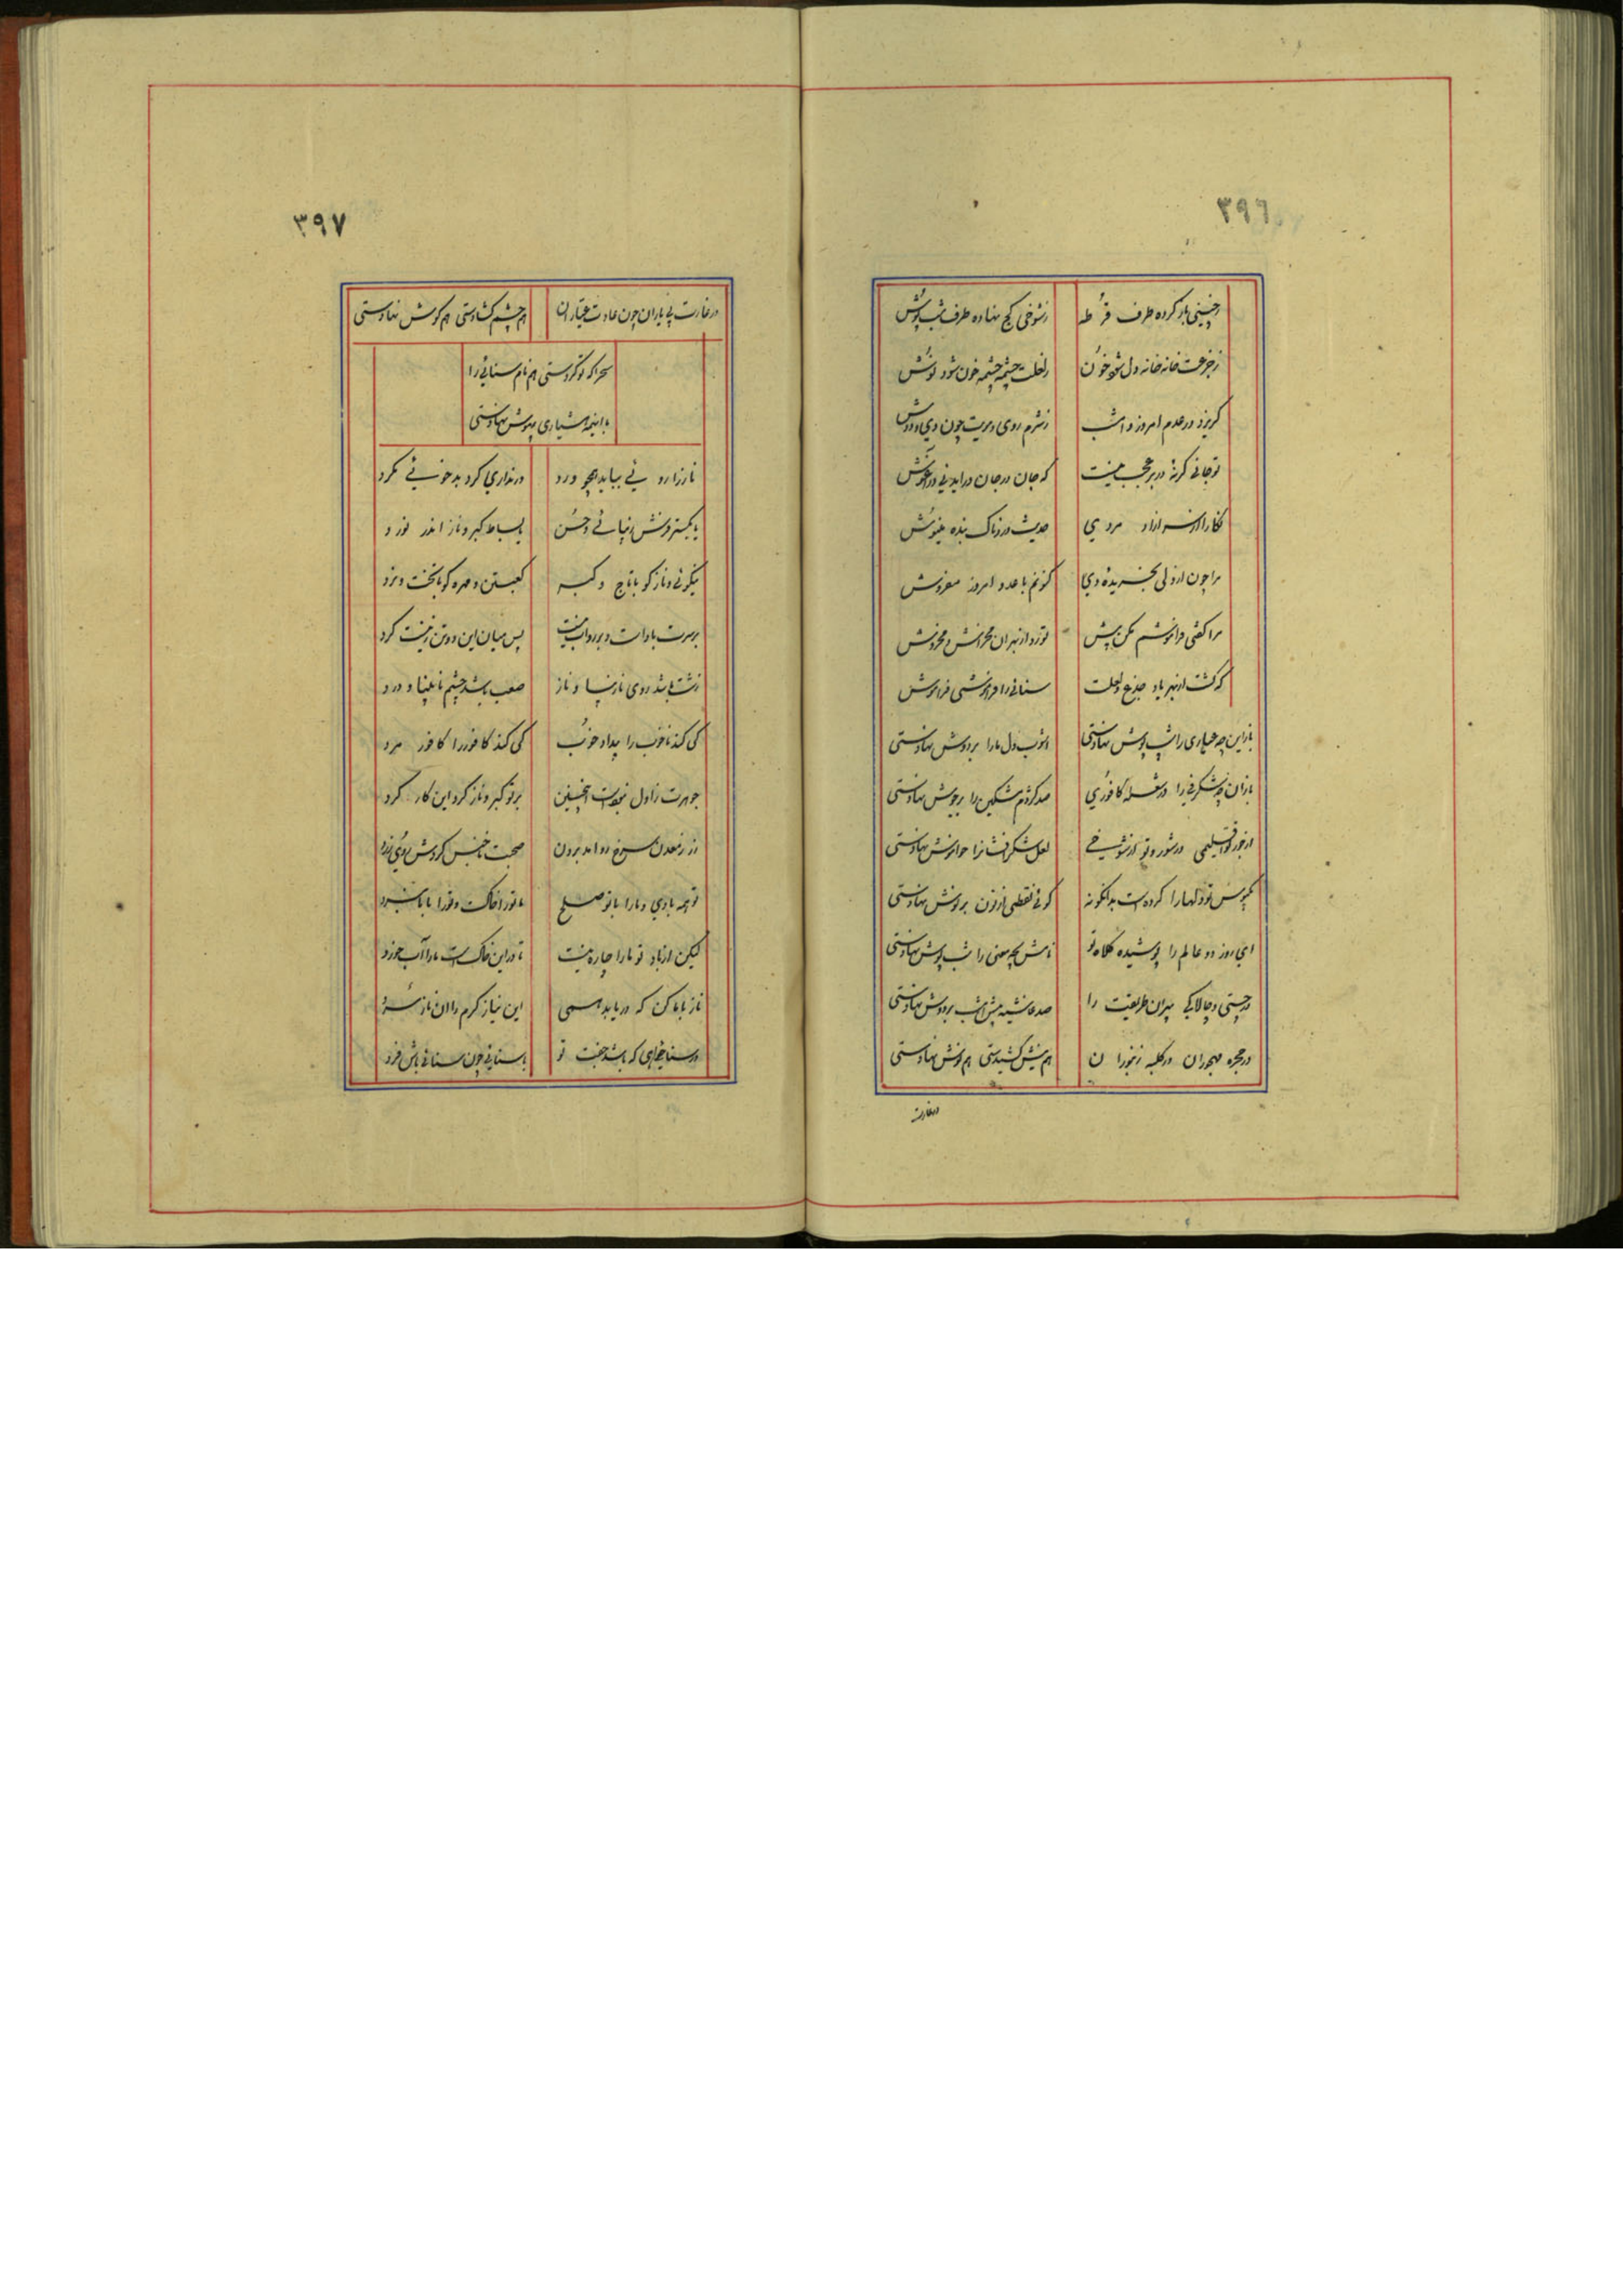 ۳۹۶
زچستی باز کرده طرف قرطه	زشوخی کج نهاده طرف شب پوش
زجزعت خانه خانه دل شود خون	زلعلت چشمه چشمه خون شود نوش
گریزد در عدم امروز و امشب	زشرم روی و مویت چون دی و دوش
تو جانی گرنهٔ در بر عجب نیست	که جان در جان درآید نی در آغوش
نگارا از سر آزاد مردی	حدیث دردناک بنده بنیوش
مرا چون از ولی بخریدهٔ دی	کنونم با عدو امروز مفروش
مرا گفتی فراموشم مکن پیش	تو زو آزین بهران مخراش و مخروش
که گشت از بهر یاد جزع و لعلت	سنائی را فراموشی فراموش
باز این چه عیاری را شب پوش نهادستی	آشوب دل ما را بر دوش نهادستی
باز آن چه شگرفی را در شعلهٔ کافوری	صد کژدم مشکین را بر جوش نهادستی
از جور تو اقلیمی در شور و تو از شوخی	لعل شکرافشانرا خوانوش نهادستی
یکبوس تو دلها را کرده است بدانگونه	گوئی نقطی از نون بر نوش نهادستی
ای روز دو عالم را پوشیده کلاه تو	نامش بچه معنی را شب پوش نهادستی
در چستی و چالاکی پیران طریقت را	صد غاشیه پیش امشب بر دوش نهادستی
در حجره مهجوران در کلبه رنجوران	هم نیش کشیدستی هم نوش نهادستی
در غارت
۳۹۷
در غارت بی یاران چون عادت عیاران	هم چشم گشادستی هم گوش نهادستی
سحرا که تو کردستی هم نام سنائی را
با اینهمه هشیاری بیهوش نهادستی
ناز را روئی بباید همچو ورد	ور نداری گرد بدخوئی مگرد
یا بگستر فرش زیبائی و حسن	یا بساط کبر و ناز اندر نورد
نیکوئی و ناز کو با تاج و کبر	کعبتین و مهره کو با تخت و نرد
بر سرت باد است و بر رو آب نیست	پس میان این دو تن زینست گرد
زشت باشد روی نازیبا و ناز	صعب باشد چشم نابینا و درد
کی کند ناخوب را بیداد خوب	کی کند کافور را کافور مرد
جوهرت زاول نبودست اینچنین	بر تو کبر و ناز کرد این کار کرد
زر ز معدن سرخ رو آمد برون	صحبت ناجنس کردش روی زرد
تو همه بادی و ما را با تو صلح	ما تو را خاک و تو را با ما نبرد
لیکن از باد تو ما را چاره نیست	تا در این خاکست ما را آب خورد
ناز با ما کن که دریابد همی	این نیاز گرم را آن ناز سرد
ور سنا خواهی که باشد جفت تو	با سنائی چون سنائی باش فرد